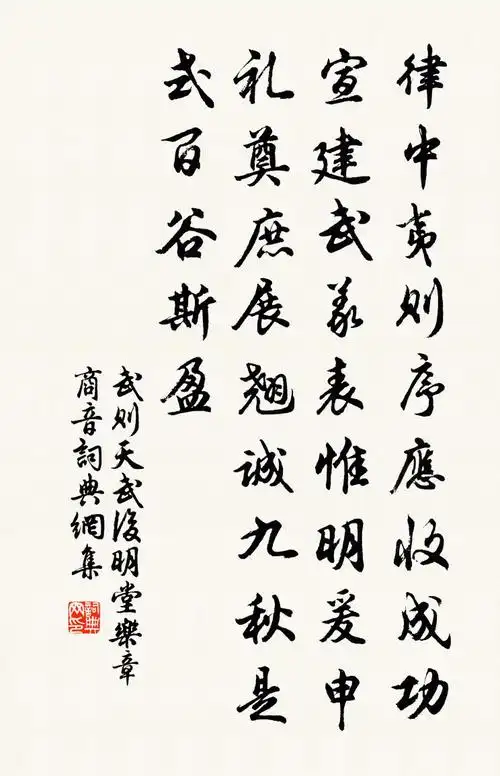 律中夷则序應收成功
宣建武義表惟明爰申
礼奠庶展翘誠九秋是
式百谷斯盈
武则天武後明堂樂章
商音詞典網集